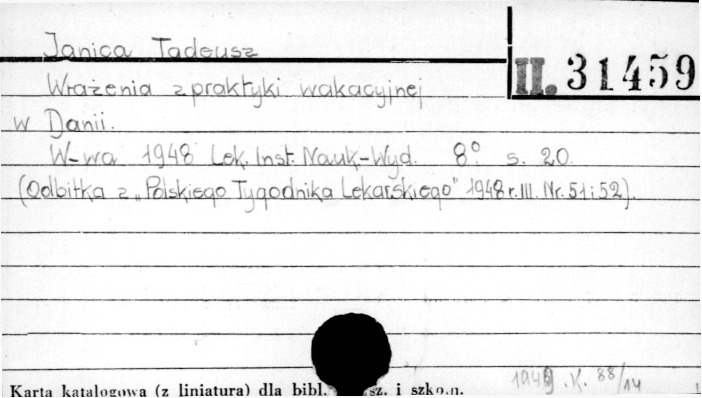 Janica Tadeusz
II. 31459
Wrażenia z praktyki wakacyjnej
w Danii.
W-wa 1948 Lek. Inst. Nauk-Wyd. 8° s. 20.
(Odbitka z „Polskiego Tygodnika Lekarskiego" 1948 r. III. Nr. 51 i 52).
1949 .K. 88/14
Karta katalogowa (z liniatura) dla bibl. sz. i szko.n.